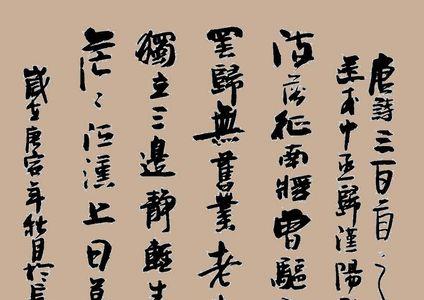 唐詩三百首之
送李中丞歸漢陽
流落征南將曾驅
罷歸無舊業老去
獨立三邊靜輕生
茫〻江漢上日暮
歲在庚寅年秋月於長